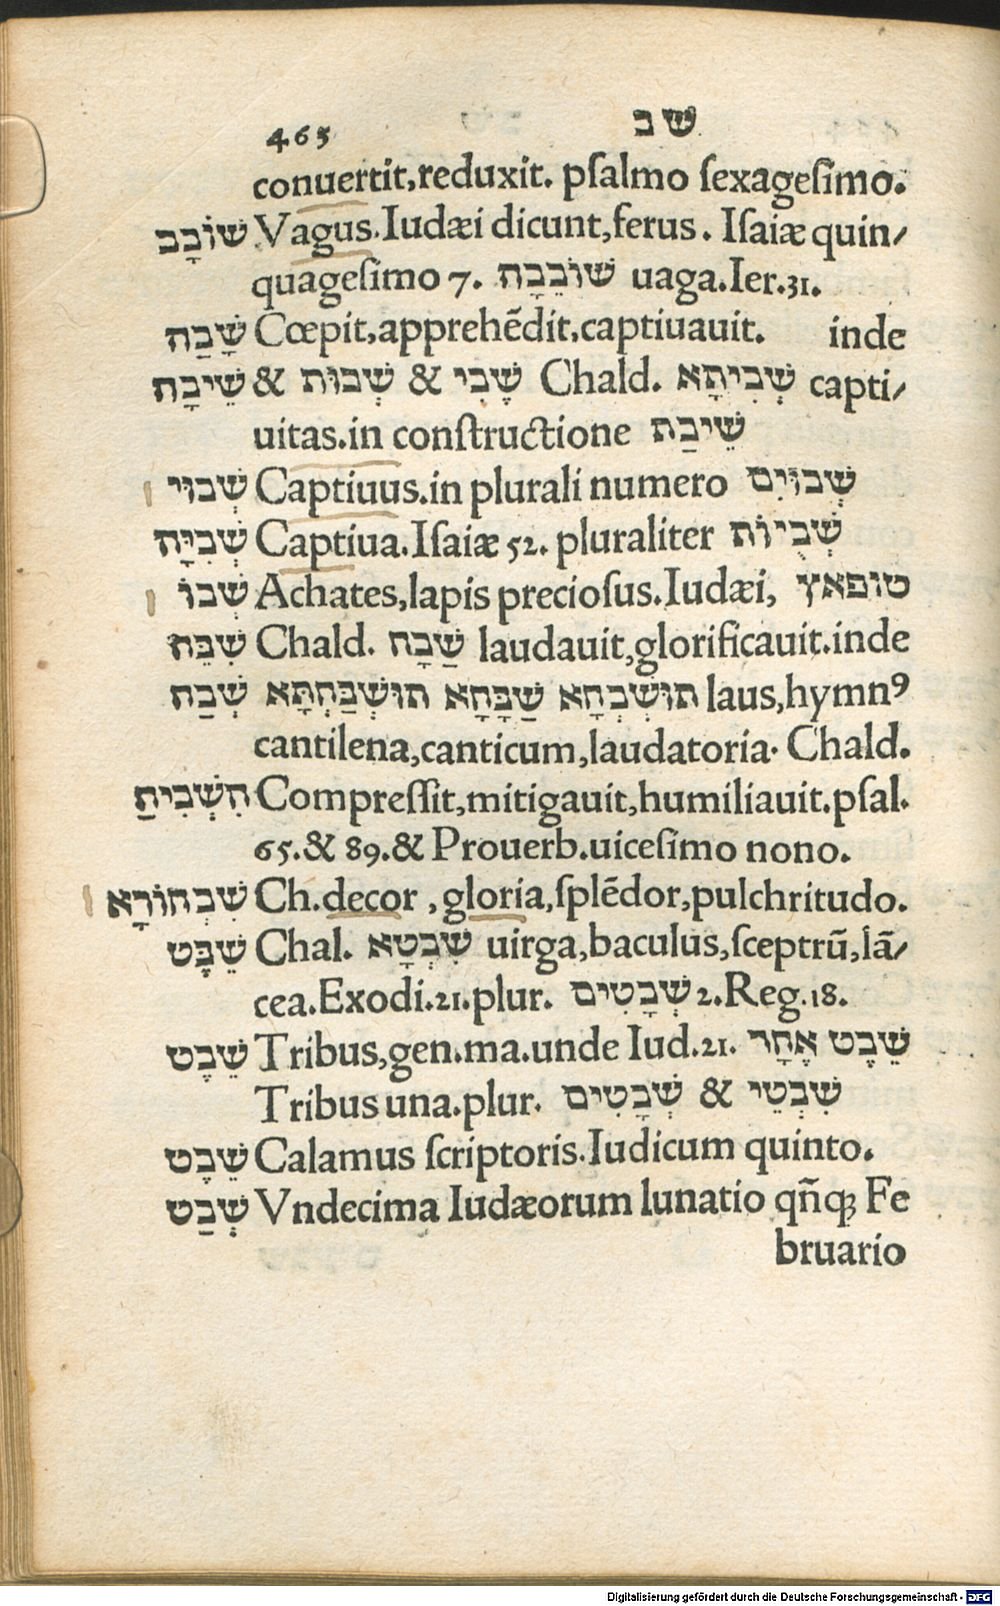 465 שב
conuertit,reduxit. psalmo sexagesimo.
שׁוֹבָב Vagus.Iudæi dicunt,ferus. Isaiæ quin/
quagesimo 7. שׁוֹבֵבָה uaga.Ier.31.
שָׁבַה Cœpit,apprehẽdit,captiuauit. inde
שִׁיבָה & שְׁבוּת & שְׁבִי Chald. שְׁבִיתָא capti/
uitas.in constructione שִׁיבַת
שְׁבוּי Captiuus.in plurali numero שְׁבוּיִם
שְׁבִיָּה Captiua.Isaiæ 52. pluraliter שְׁבֻיוֹת
שְׁבוֹ Achates,lapis preciosus.Iudæi, טופאץ
שִׁבַּח Chald. שַׁבָח laudauit,glorificauit.inde
שְׁבַח תּוּשְׁבַּחְתָּא שַׁבָּחָא תוּשְׁבְּחָא laus,hymnꝰ
cantilena,canticum,laudatoria. Chald.
הִשְׁבִּיחַ Compressit,mitigauit,humiliauit.psal.
65.& 89.& Prouerb.uicesimo nono.
שִׁבְחוֹרָא Ch.decor ,gloria,splẽdor,pulchritudo.
שֵׁבֶט Chal. שִׁבְטָא uirga,baculus,sceptrũ,lã/
cea.Exodi.21.plur. שְׁבָטִים 2.Reg.18.
שֵׁבֶט Tribus,gen.ma.unde Iud.21. שֵׁבֶט אֶחָד
Tribus una.plur. שְׁבָטִים & שִׁבְטֵי
שֵׁבֶט Calamus scriptoris.Iudicum quinto.
שְׁבַט Vndecima Iudæorum lunatio qñqꝫ Fe
bruario
Digitalisierung gefördert durch die Deutsche Forschungsgemeinschaft - DFG